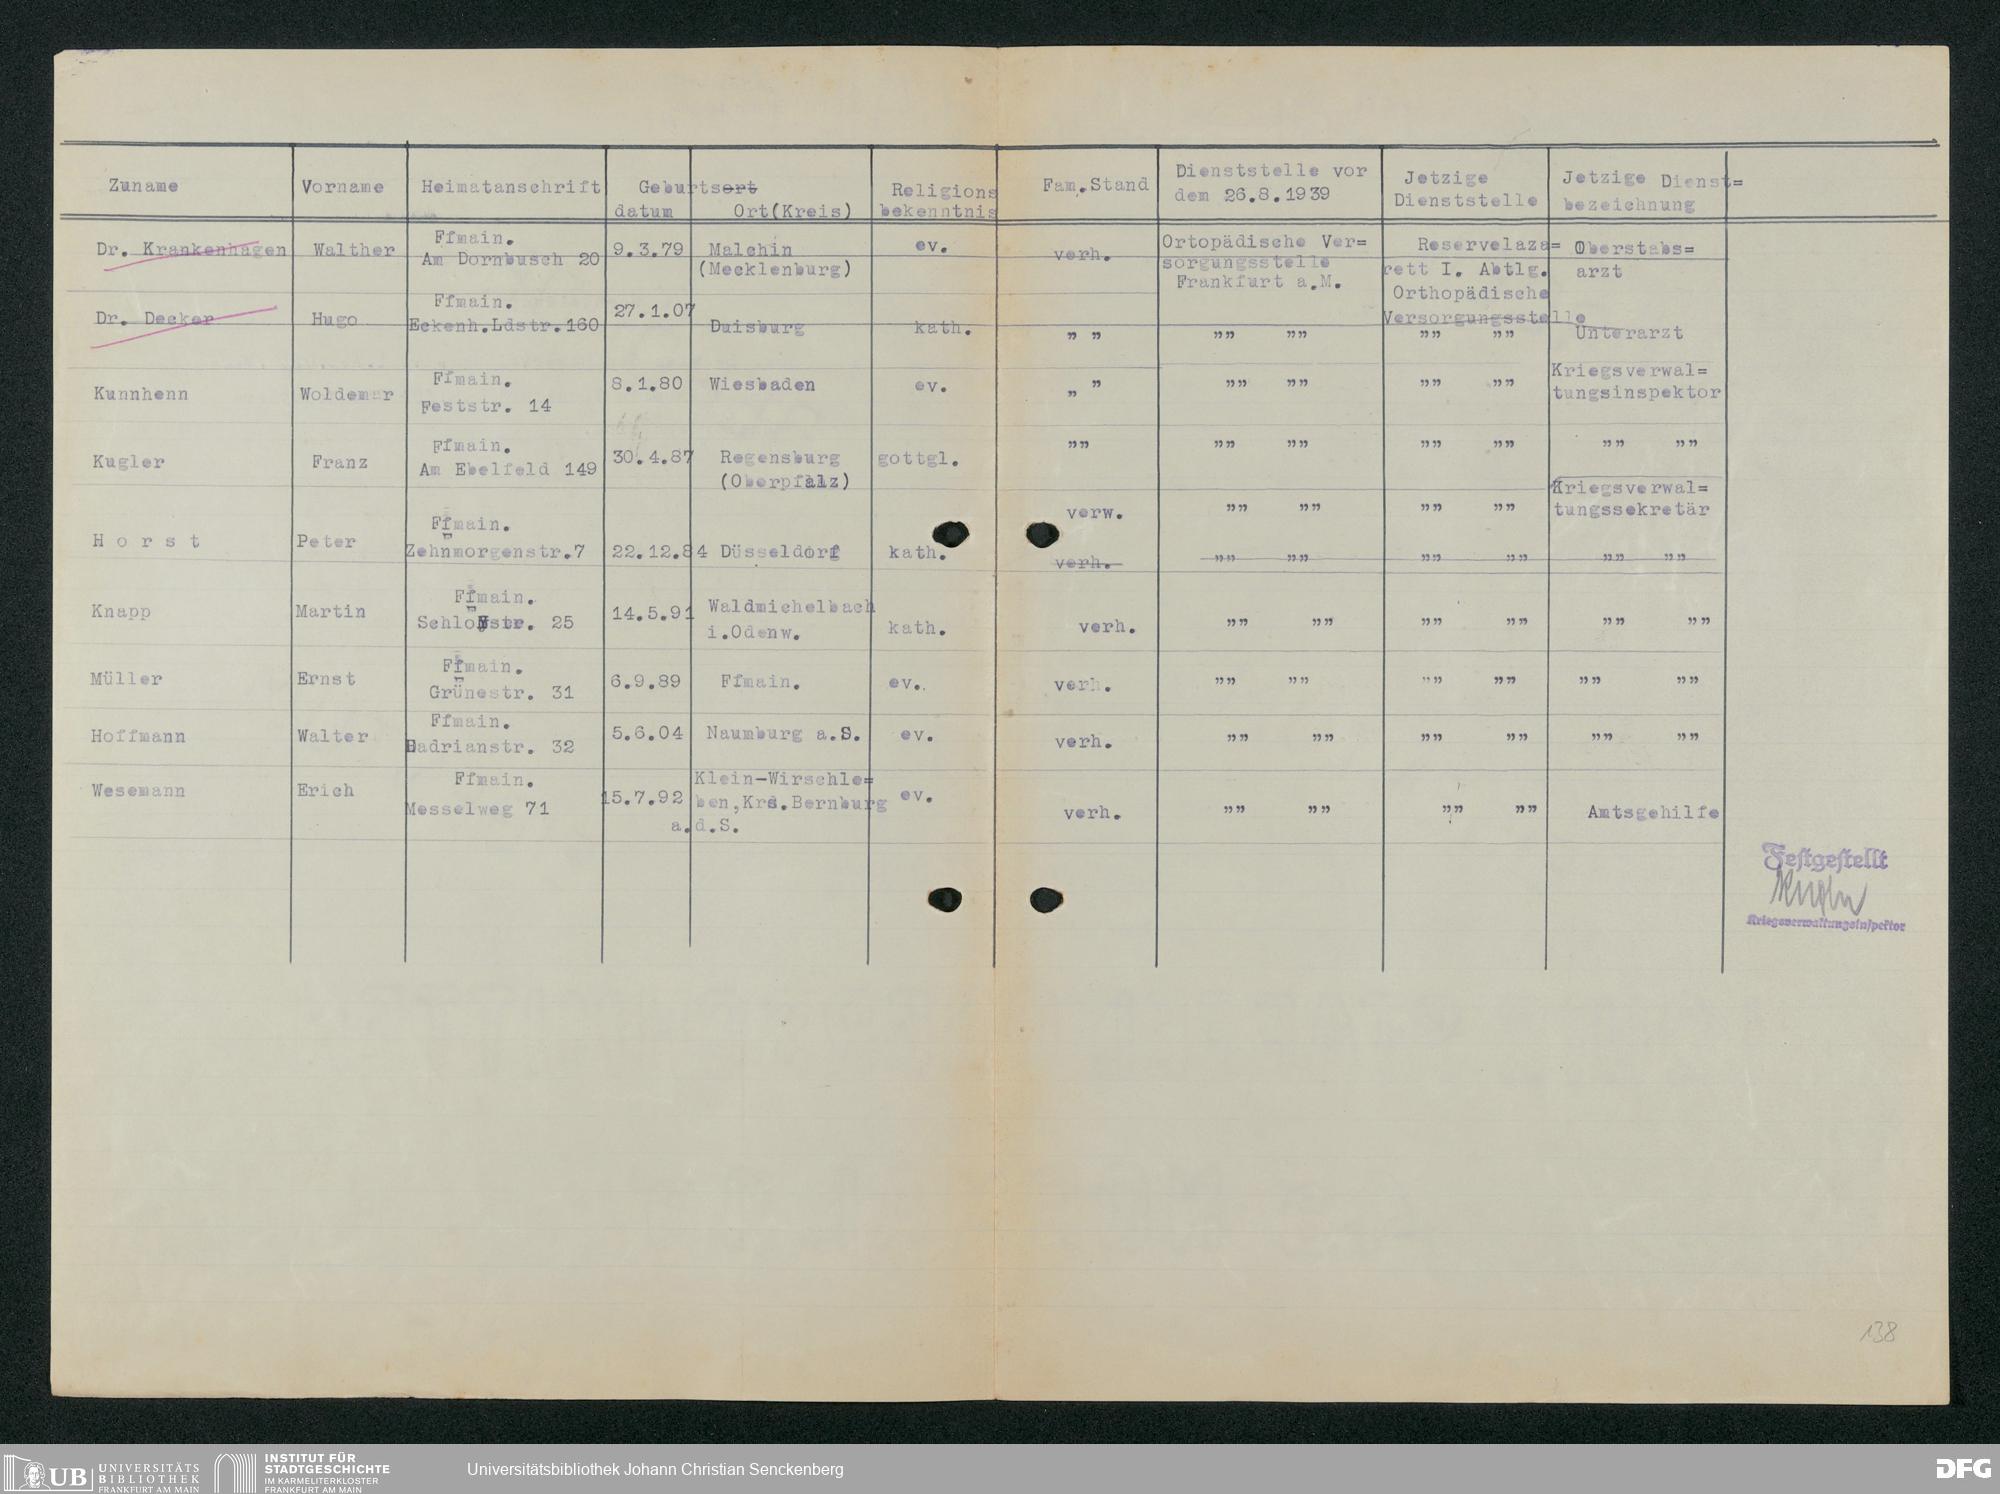 Zuname Vorname Heimatanschrift Geburtsort Religions Fam.Stand Dienststelle vor Jetzige Jetzige Dienst=
datum Ort(Kreis) bekenntnis dem 26.8.1939 Dienststelle bezeichnung
Dr. Krankenhagen Walther Ffmain. 9.3.79 Malchin ev. verh. Ortopädische Ver= Reservelaza= Oberstabs=
Am Dornbusch 20 (Mecklenburg) sorgungsstelle rett I. Abtlg. arzt
Frankfurt a.M. Orthopädische
Versorgungsstelle
Dr. Decker Hugo Ffmain. 27.1.07 Duisburg kath. " " "" "" "" "" Unterarzt
Eckenh.Ldstr.160
Kunnhenn Woldemar Ffmain. 8.1.80 Wiesbaden ev. " " "" "" "" "" Kriegsverwal=
Feststr. 14 tungsinspektor
Kugler Franz Ffmain. 30.4.87 Regensburg gottgl. "" "" "" "" "" "" ""
Am Ebelfeld 149 (Oberpfalz)
Horst Peter Ffmain. 22.12.84 Düsseldorf kath. verw. "" "" "" "" Kriegsverwal=
Zehnmorgenstr.7 tungssekretär
verh. "" "" "" "" "" ""
Knapp Martin Ffmain. 14.5.91 Waldmichelbach kath. verh. "" "" "" "" "" ""
Schloßstr. 25 i.Odenw.
Müller Ernst Ffmain. 6.9.89 Ffmain. ev. verh. "" "" "" "" "" ""
Grünestr. 31
Hoffmann Walter Ffmain. 5.6.04 Naumburg a.S. ev. verh. "" "" "" "" "" ""
Hadrianstr. 32
Wesemann Erich Ffmain. 15.7.92 Klein-Wirschle= ev. verh. "" "" "" "" Amtsgehilfe
Messelweg 71 ben,Krs.Bernburg
a.d.S.
Festgestellt
Kugler
Kriegsverwaltungsinspektor
138
UB UNIVERSITÄTS
BIBLIOTHEK
FRANKFURT AM MAIN
INSTITUT FÜR
STADTGESCHICHTE
IM KARMELITERKLOSTER
FRANKFURT AM MAIN
Universitätsbibliothek Johann Christian Senckenberg
DFG